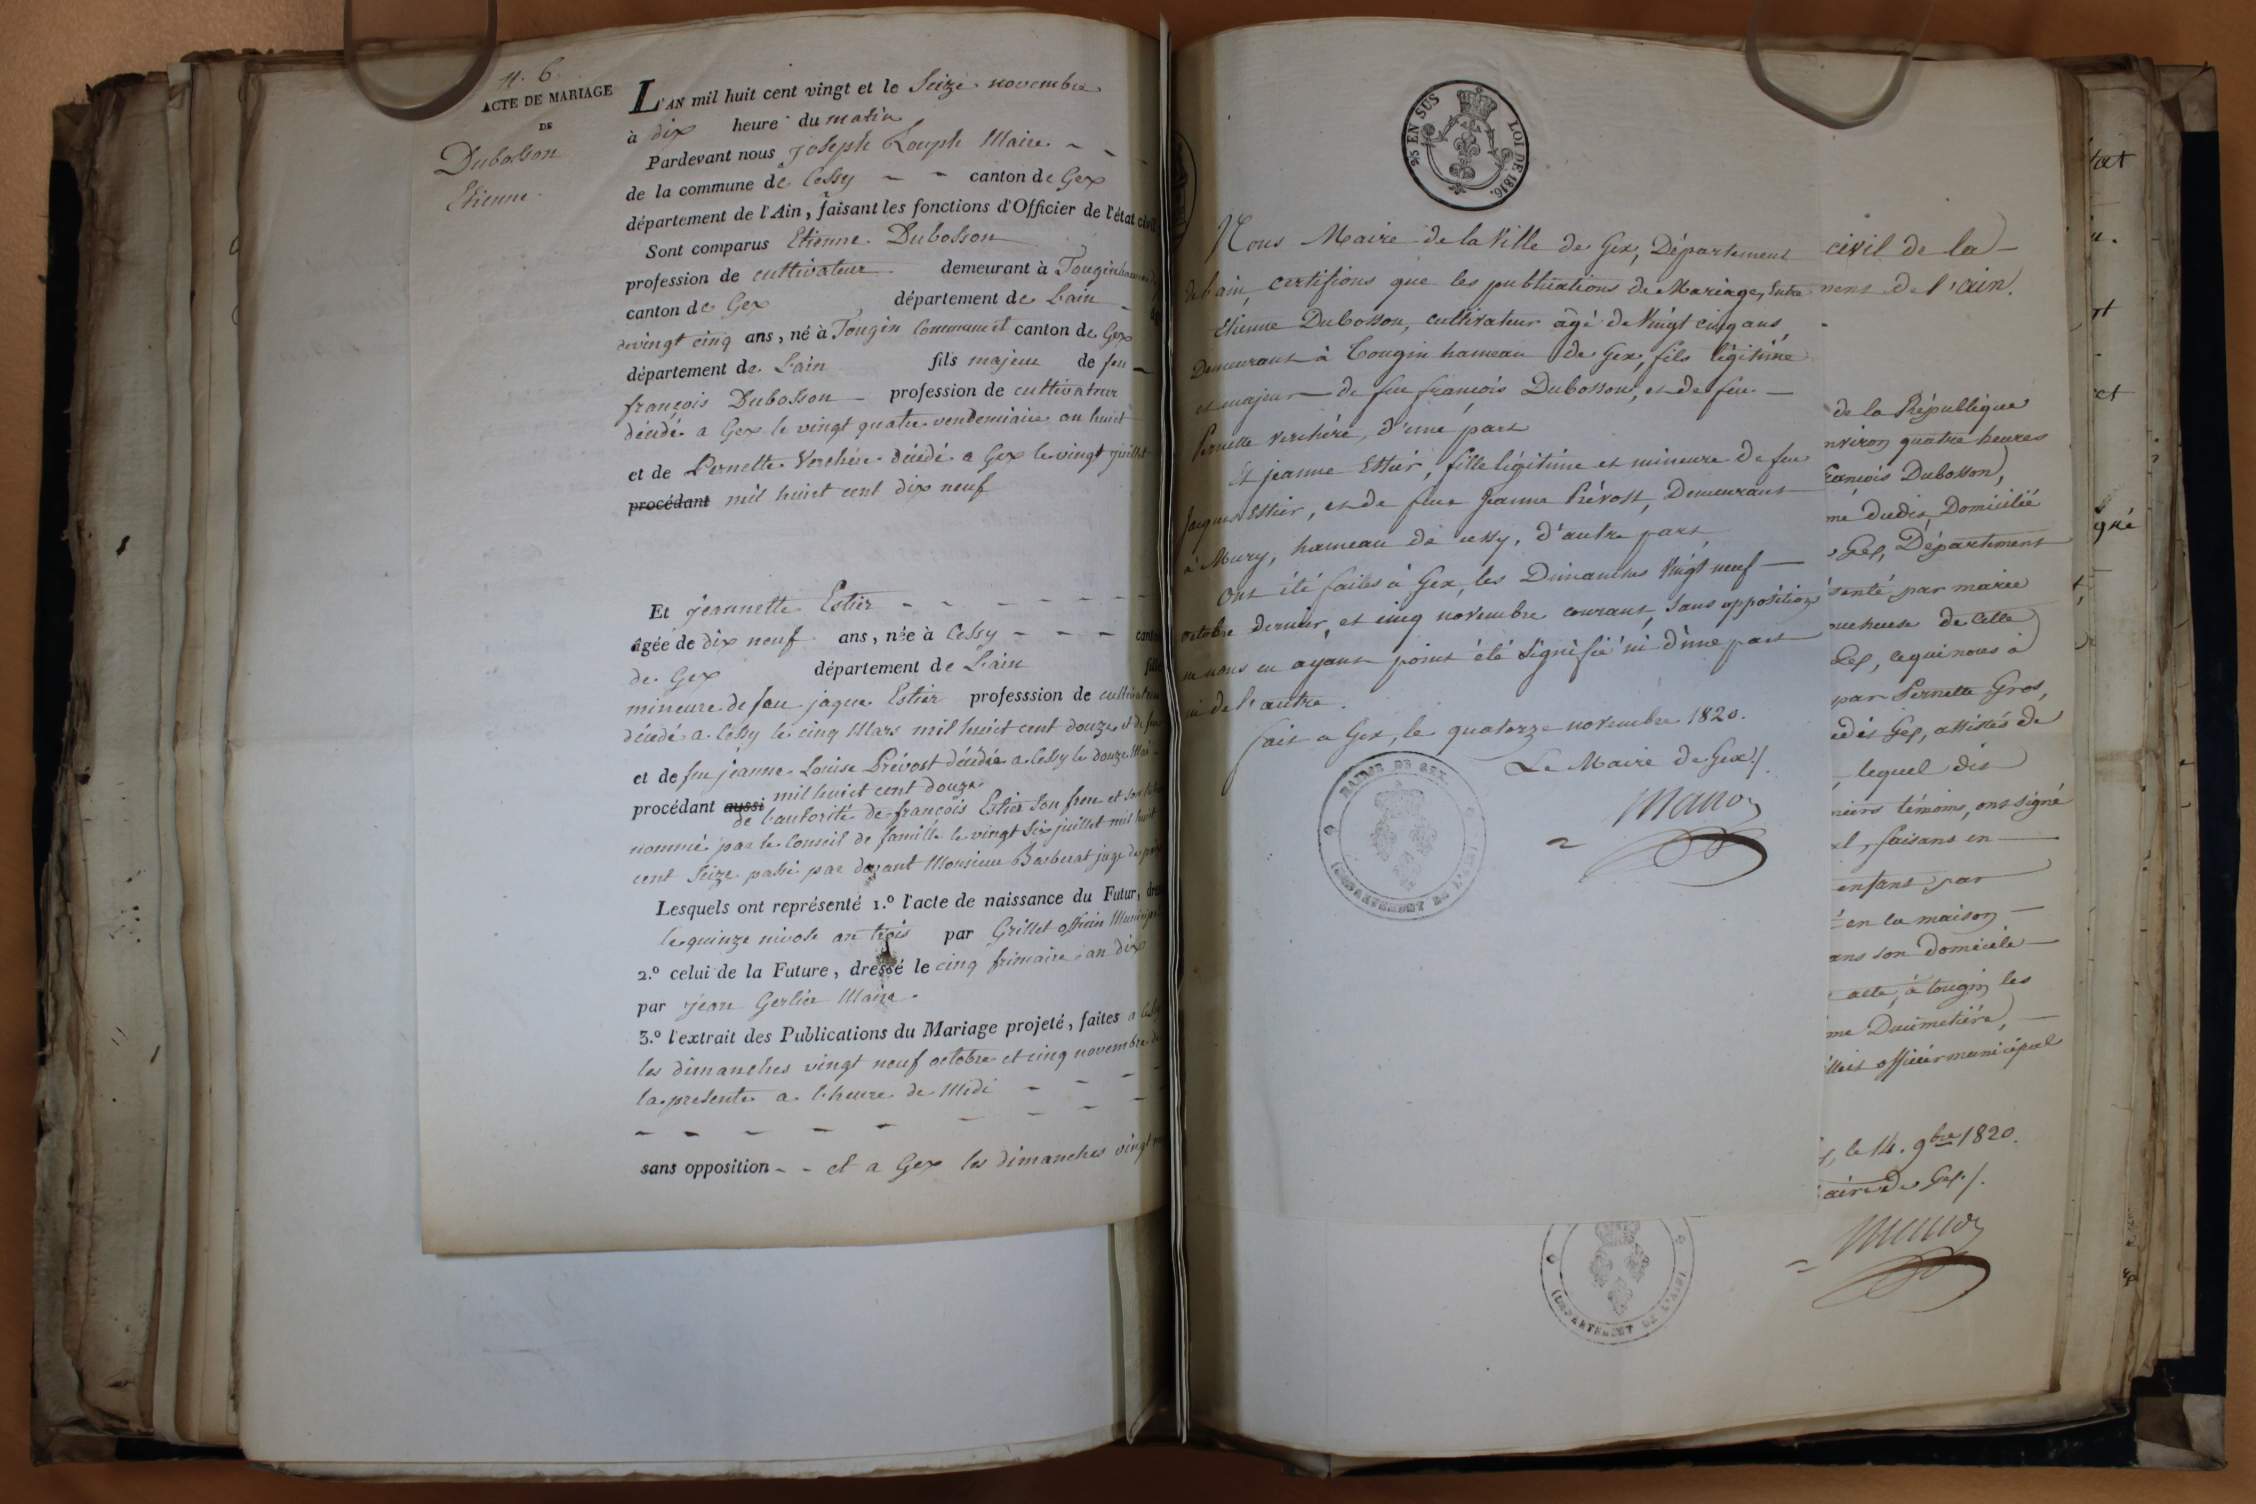 N. 6.
ACTE DE MARIAGE
DE
Dubosson
Etienne.
L'AN mil huit cent vingt et le Seize novembre
à dix heure du matin
Pardevant nous Joseph Louph Maire
de la commune de Cessy canton de Gex
département de l'Ain, faisant les fonctions d'Officier de l'état civil
Sont comparus Etienne Dubosson
profession de cultivateur demeurant à Tougin
canton de Gex département de Lain
de vingt cinq ans, né à Tougin Commune et canton de Gex
département de Lain fils majeur de feu
françois Dubosson profession de cultivateur
décédé a Gex le vingt quatre vendemiaire an huit
et de Pernette Verchère décédé a Gex le vingt juillet
procédant mil huict cent dix neuf
Et jeannette Estier
âgée de dix neuf ans, née à Cessy canton
de Gex département de Lain fille
mineure de feu jaque Estier professsion de cultivateur
décédé a Cessy le cinq Mars mil huict cent douze et de feu
et de feu jeanne Louise Prévost décédée a Cessy le douze Mai
mil huict cent douze
procédant aussi de l'autorité de françois Estier Son frere et son
nommé par le Conseil de famille le vingt Six juillet mil huit
cent Seize passé par devant Monsieur Barberat juge de paix
Lesquels ont représenté 1.º l'acte de naissance du Futur, dressé
le quinze nivose an trois par Grillet officier Municipal
2.º celui de la Future, dressé le cinq frimaire an dix
par jean Gerlier Maire.
3.º l'extrait des Publications du Mariage projeté, faites a Cessy
les dimanches vingt neuf octobre et cinq novembre de
la presente a l'heure de Midi
sans opposition - - et a Gex les dimanches vingt
25 EN SUS
LOI DE 1816.
Nous Maire de la Ville de Gex, Département
de l'ain, certifions que les publications de Mariage, Entre
Etienne Dubosson, cultivateur agé de Vingt cinq ans,
Demeurant à Tougin hameau de Gex, fils légitime
et majeur de feu françois Dubosson, et de feue
Pernette Verchère, d'une part
Et jeanne Estier, fille légitime et mineure de feu
Jacques Estier, et de feue Jeanne Prévost, Demeurant
à Mury, hameau de cessy, d'autre part,
Ont été faites à Gex, les Dimanches Vingt neuf
octobre dernier, et cinq novembre courant, Sans opposition
ne nous en ayant point été Signifié ni d'une part
ni de l'autre.
fait a Gex, le quatorze novembre 1820.
Le Maire de Gex./.
MAIRIE DE GEX
(DÉPARTEMENT DE L'AIN)
civil de la
ment de l'ain.
de la République
nviron quatre heures
rançois Dubosson,
me dudit, Domicilié
Gex, Département
senté par marie
oucheuse de Cette
Gex, ce qui nous à
par Pernette Gros,
edit Gex, assistés de
lequel dit
niers témoins, ont signé
el, faisant en
enfant par
en la maison
ans son Domicile
acte, à tougin, les
me Ducimetière,
illet officier municipal
le 14. 9bre 1820.
aire de Gex./.
(DÉPARTEMENT DE L'AIN)
tat
rt
et
gné